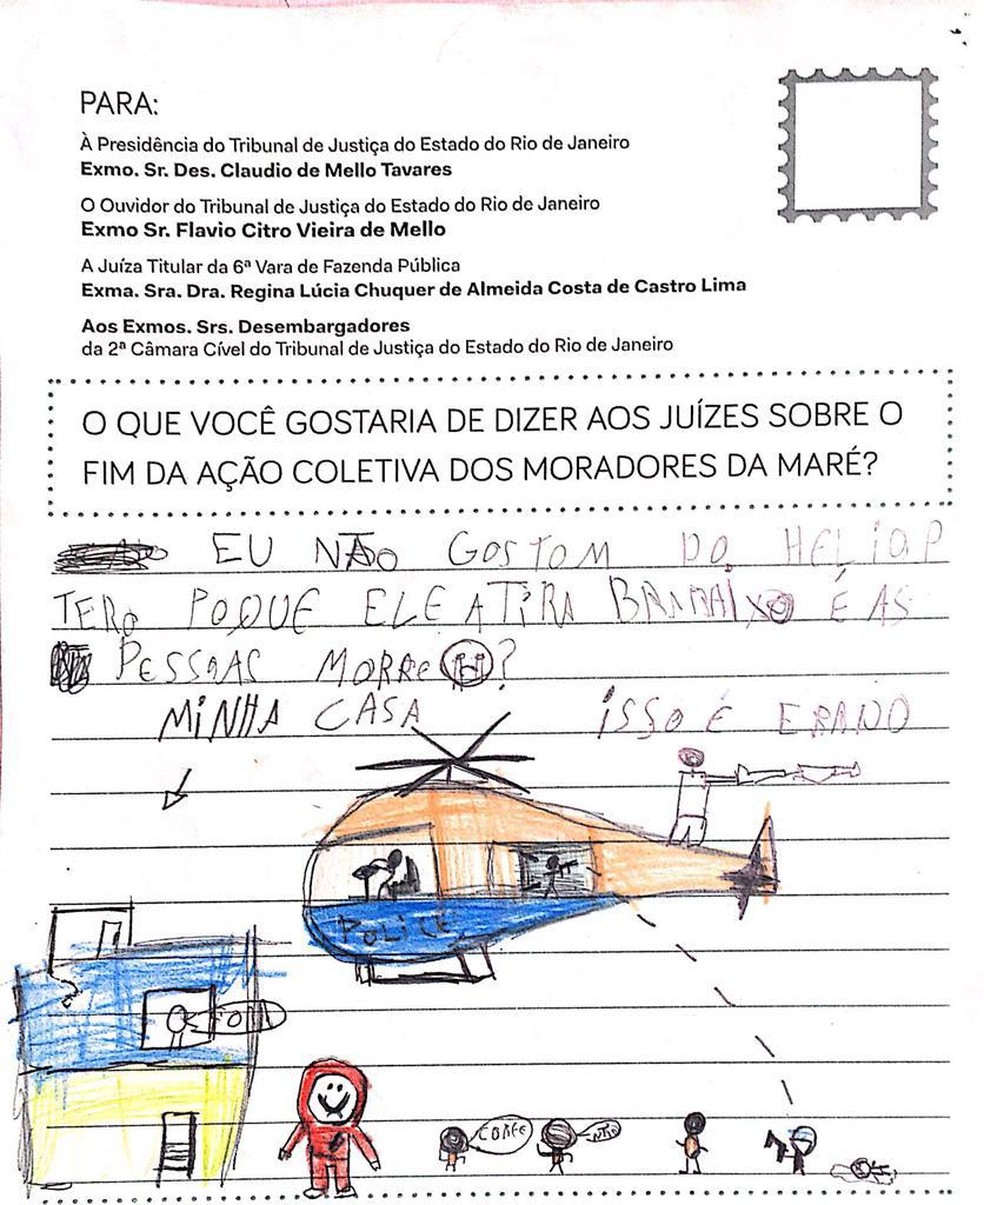 PARA:
À Presidência do Tribunal de Justiça do Estado do Rio de Janeiro
Exmo. Sr. Des. Claudio de Mello Tavares
O Ouvidor do Tribunal de Justiça do Estado do Rio de Janeiro
Exmo Sr. Flavio Citro Vieira de Mello
A Juíza Titular da 6ª Vara de Fazenda Pública
Exma. Sra. Dra. Regina Lúcia Chuquer de Almeida Costa de Castro Lima
Aos Exmos. Srs. Desembargadores
da 2ª Câmara Cível do Tribunal de Justiça do Estado do Rio de Janeiro
O QUE VOCÊ GOSTARIA DE DIZER AOS JUÍZES SOBRE O
FIM DA AÇÃO COLETIVA DOS MORADORES DA MARÉ?
EU NÃO GOSTOM DO HELIOP
TERO POQUE ELE ATIRA É AS
PESSOAS MORRE ?
MINHA CASA ISSO É ERADO
POLICE
CORRE
NÃO